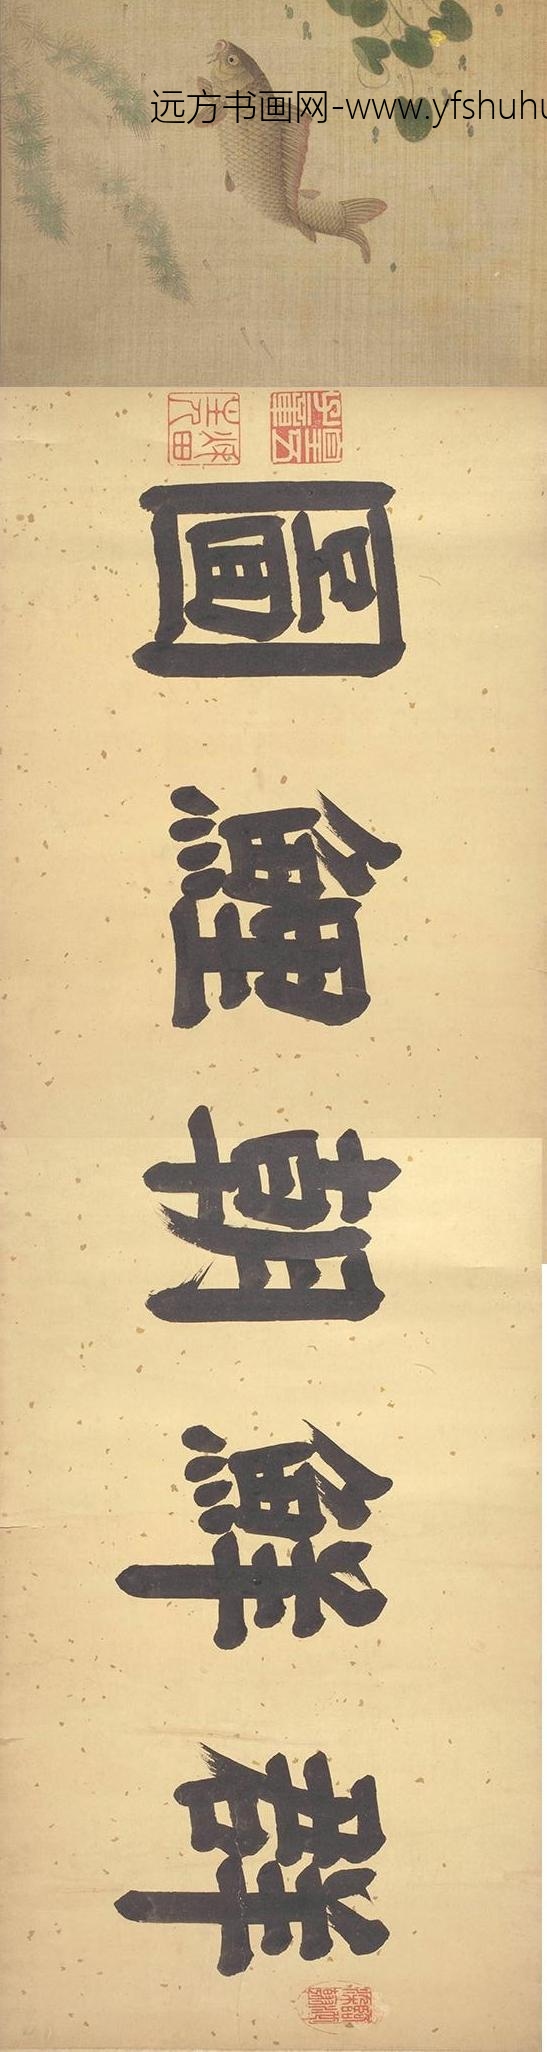 远方书画网-www.yfshuhu
群鮮朝鯉圖